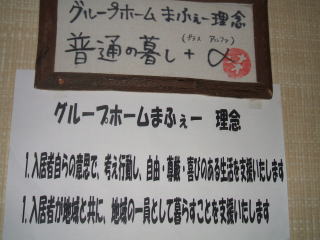 グループホームまふぇー理念
(プラス アルファ)
普通の暮し+α
グループホームまふぇー 理念
1.入居者自らの意思で、考え行動し、自由・尊厳・喜びのある生活を支援いたします
1.入居者が地域と共に、地域の一員として暮らすことを支援いたします